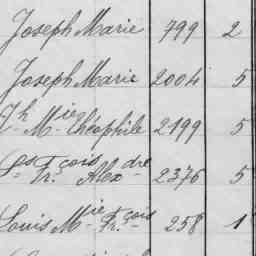 Joseph Marie 799 2
Joseph Marie 2004 5
Jh Mie Théophile 2199 5
Frçois Alexdre 2376 5
Louis Mie Frçois 258 1